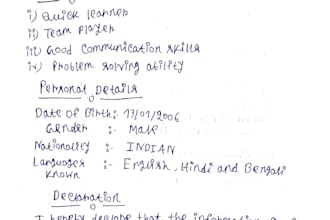 i) Quick learner
ii) Team player
iii) Good Communication skills
iv) Problem solving ability
Personal Details
Date of Birth: 13/01/2006
Gender :- Male
Nationality :- INDIAN
Languages known :- English, Hindi and Bengali
Declaration
I hereby declare that the information